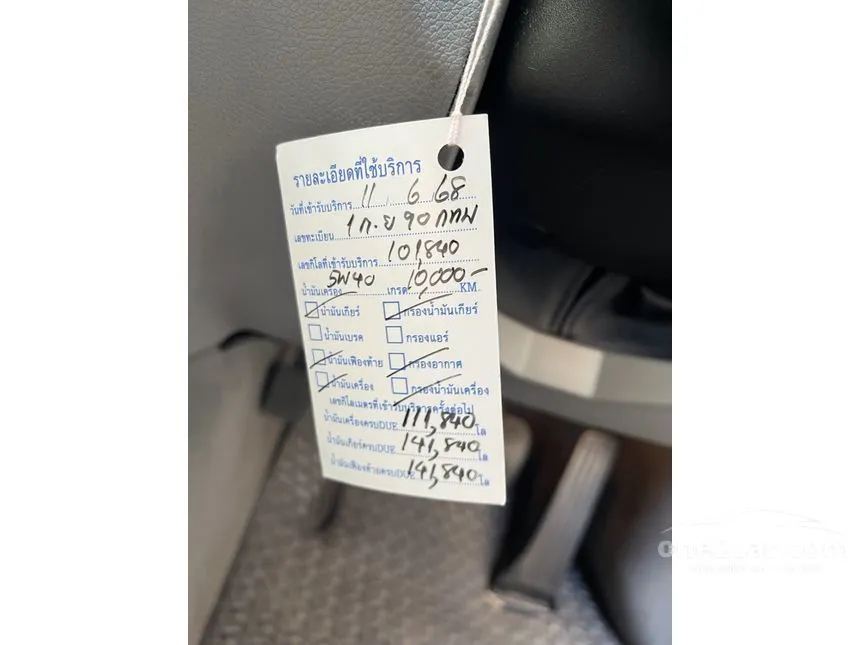 รายละเอียดที่ใช้บริการ
วันที่เข้ารับบริการ 11 6 68
เลขทะเบียน 1 ก.ย 90 กทม
เลขกิโลที่เข้ารับบริการ 101,840
น้ำมันเครื่อง 5W40 เกรด 10,000- KM.
น้ำมันเกียร์ กรองน้ำมันเกียร์
น้ำมันเบรค กรองแอร์
น้ำมันเฟืองท้าย กรองอากาศ
น้ำมันเครื่อง กรองน้ำมันเครื่อง
เลขกิโลเมตรที่เข้ารับบริการครั้งต่อไป
น้ำมันเครื่องครบDUE 111,840 โล
น้ำมันเกียร์ครบDUE 141,840 โล
น้ำมันเฟืองท้ายครบDUE 141,840 โล